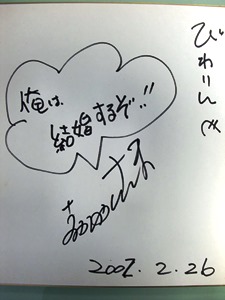 びわりん
俺は、
結婚するぞ!!
2007.2.26